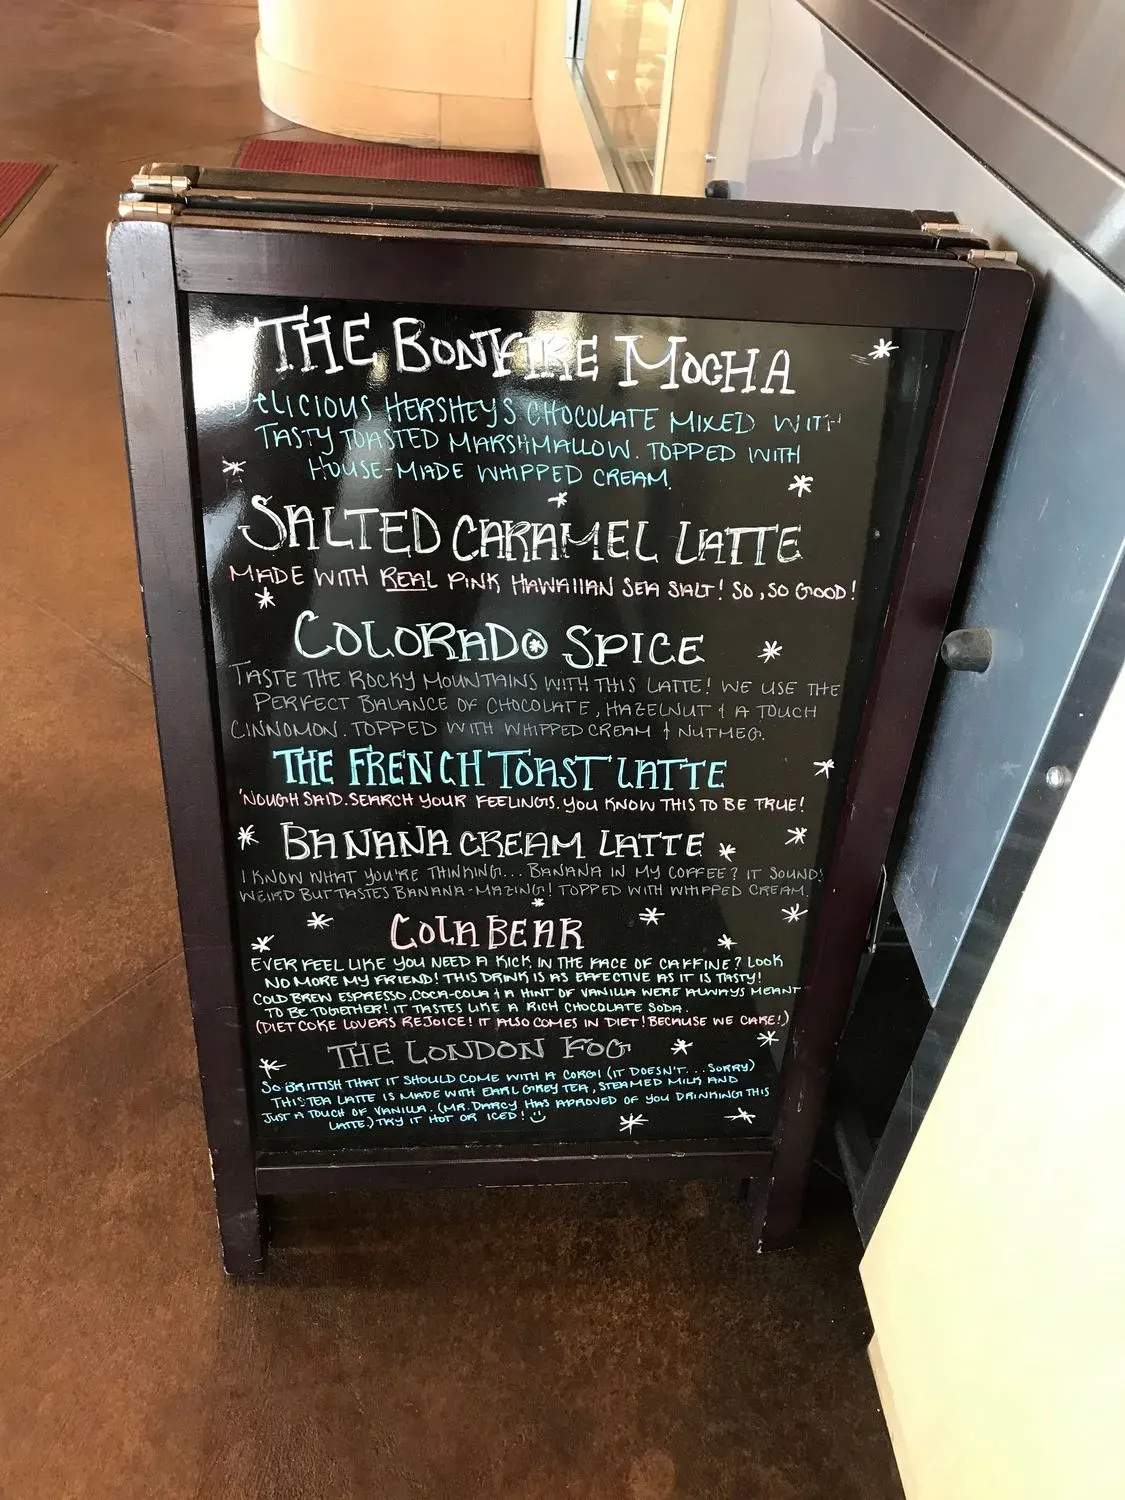 THE BONFIRE MOCHA
DELICIOUS HERSHEY'S CHOCOLATE MIXED WITH
TASTY TOASTED MARSHMALLOW. TOPPED WITH
HOUSE-MADE WHIPPED CREAM.
SALTED CARAMEL LATTE
MADE WITH REAL PINK HAWAIIAN SEA SALT! SO, SO GOOD!
COLORADO SPICE
TASTE THE ROCKY MOUNTAINS WITH THIS LATTE! WE USE THE
PERFECT BALANCE OF CHOCOLATE, HAZELNUT & A TOUCH
CINNOMON. TOPPED WITH WHIPPED CREAM & NUTMEG.
THE FRENCH TOAST LATTE
'NOUGH SAID. SEARCH YOUR FEELINGS. YOU KNOW THIS TO BE TRUE!
BANANA CREAM LATTE
I KNOW WHAT YOU'RE THINKING... BANANA IN MY COFFEE? IT SOUNDS
WEIRD BUT TASTES BANANA-MAZING! TOPPED WITH WHIPPED CREAM.
COLA BEAR
EVER FEEL LIKE YOU NEED A KICK IN THE FACE OF CAFFINE? LOOK
NO MORE MY FRIEND! THIS DRINK IS AS EFFECTIVE AS IT IS TASTY!
COLD BREW ESPRESSO, COCA-COLA & A HINT OF VANILLA WERE ALWAYS MEANT
TO BE TOGETHER! IT TASTES LIKE A RICH CHOCOLATE SODA.
(DIET COKE LOVERS REJOICE! IT ALSO COMES IN DIET! BECAUSE WE CARE!)
THE LONDON FOG
SO BRITTISH THAT IT SHOULD COME WITH A CORGI (IT DOESN'T... SORRY)
THIS TEA LATTE IS MADE WITH EARL GREY TEA, STEAMED MILK AND
JUST A TOUCH OF VANILLA. (MR. DARCY HAS APROVED OF YOU DRINKING THIS
LATTE.) TRY IT HOT OR ICED! :)